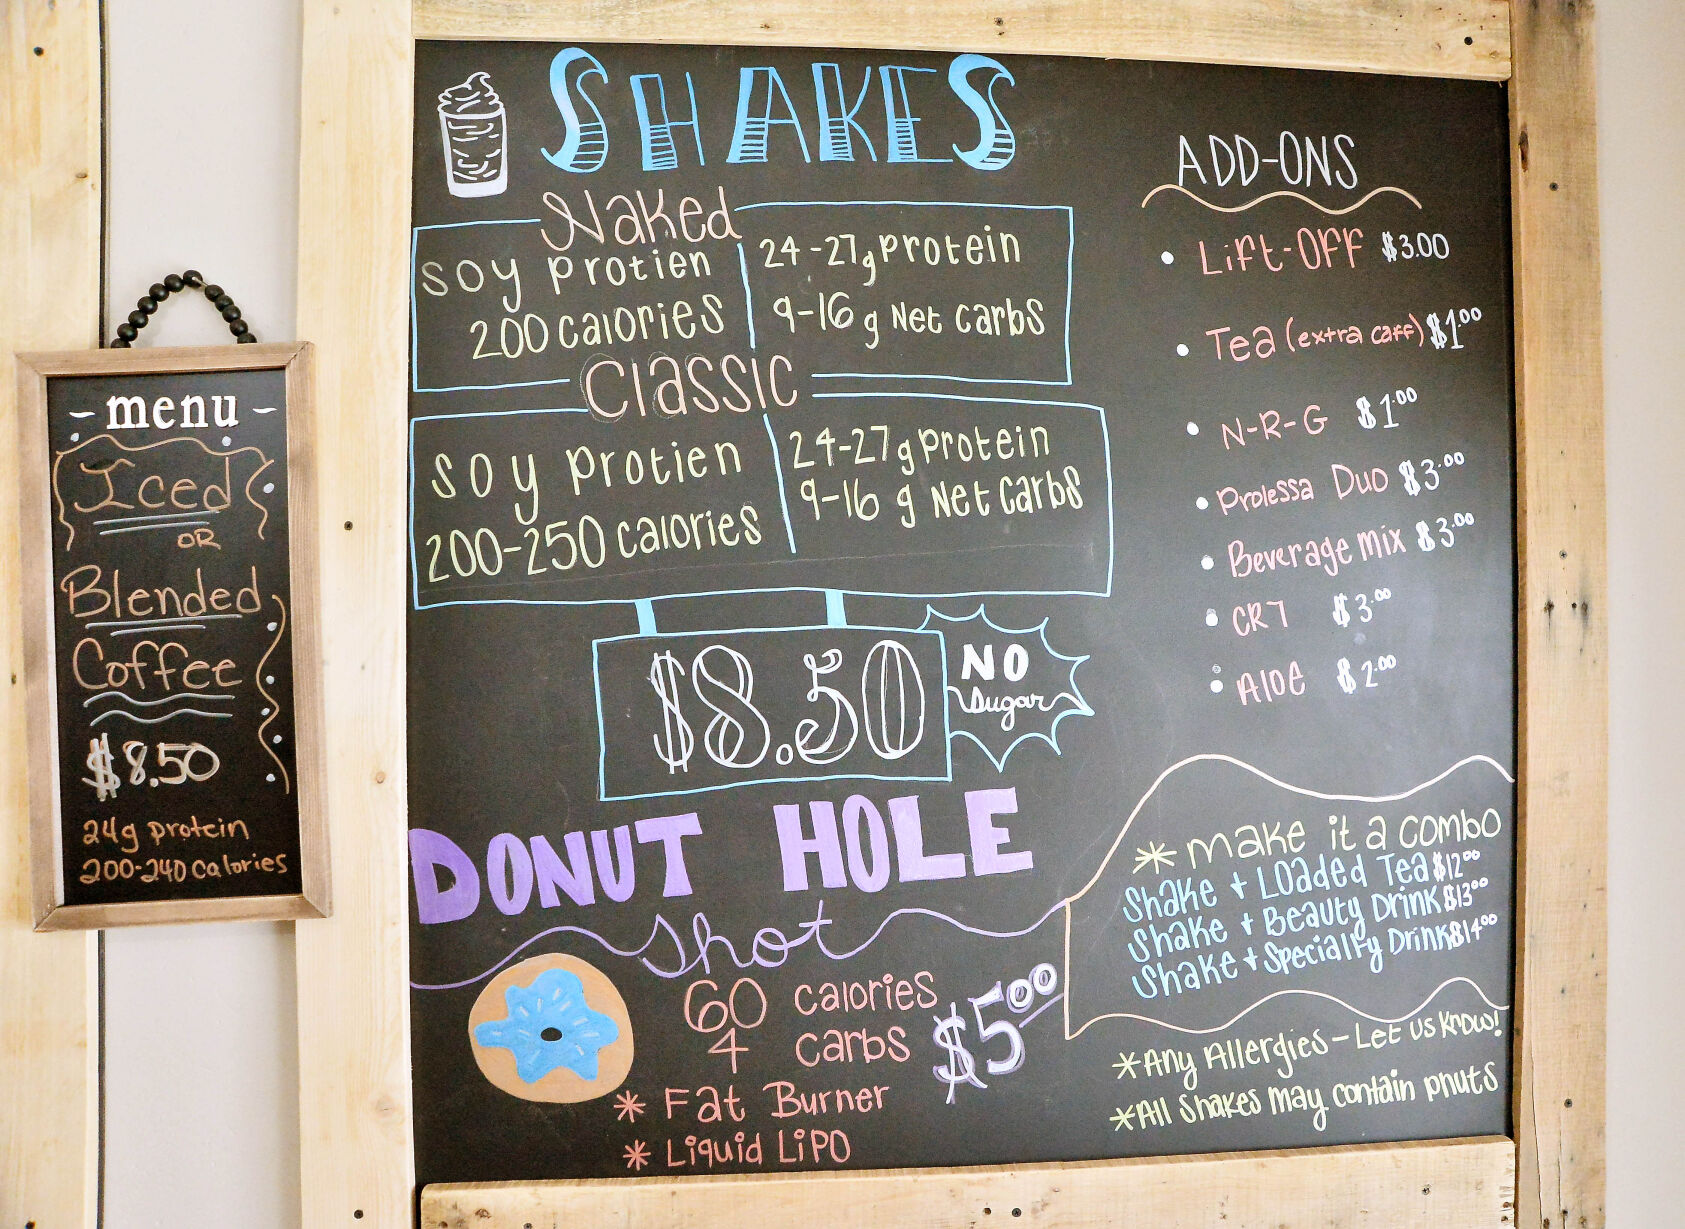 - menu -
Iced
OR
Blended
Coffee
$8.50
24g protein
200-240 calories
SHAKES
Naked
soy protien
200 calories
24-27g protein
9-16 g Net carbs
Classic
soy protien
200-250 calories
24-27g protein
9-16 g Net carbs
$8.50
NO
Sugar
DONUT HOLE
shot
60 calories
4 carbs
$5.00
* Fat Burner
* Liquid LiPO
ADD-ONS
• Lift-OFF $3.00
• Tea (extra caff) $1.00
• N-R-G $1.00
• Prolessa Duo $3.00
• Beverage mix $3.00
• CR7 $3.00
• Aloe $2.00
* make it a combo
Shake + Loaded Tea $12.00
Shake + Beauty Drink $13.00
Shake + Specialty Drink $14.00
*Any Allergies - Let us know!
*All Shakes may contain pnuts